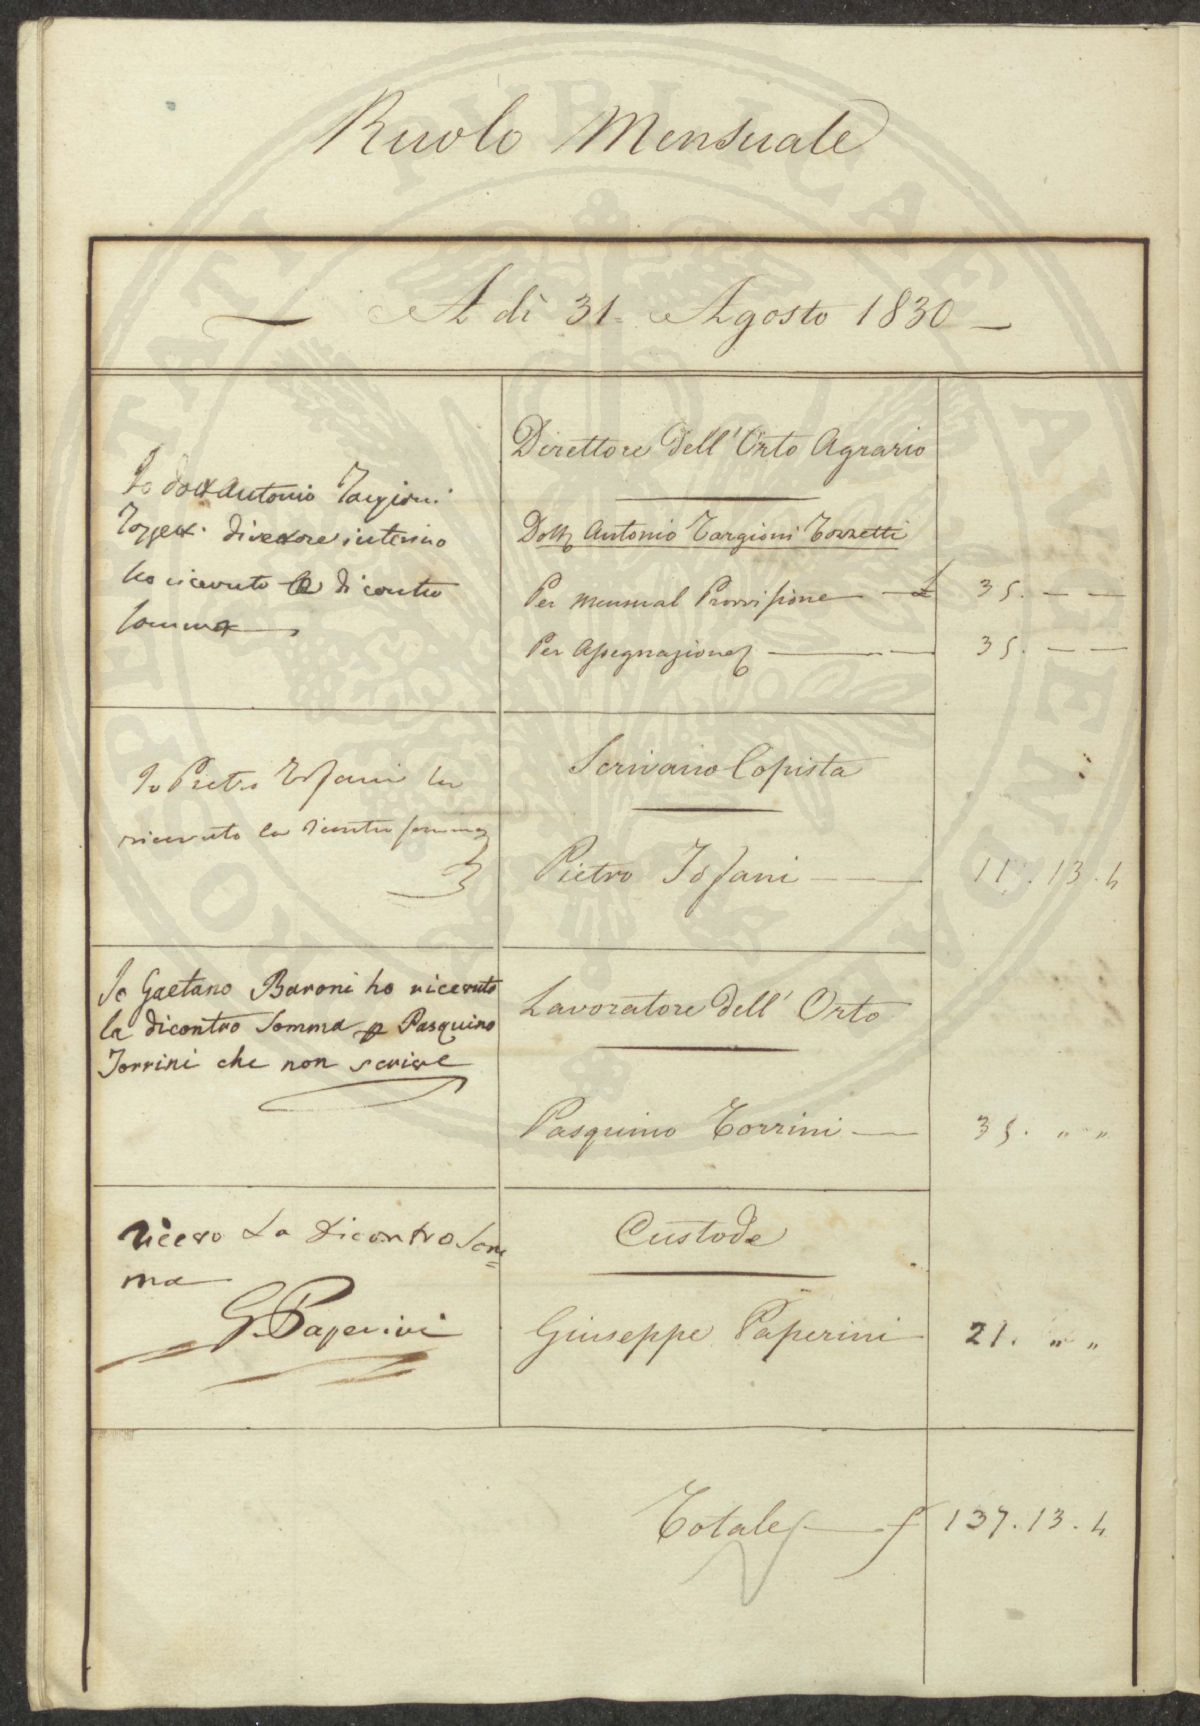 Ruolo Mensuale
A dì 31 Agosto 1830
Direttore dell'Orto Agrario
Io Dott Antonio Targioni
Tozzetti direttore interino
ho ricevuto la di contro
somma
Dott. Antonio Targioni Tozzetti
Per mensual Provvisione £ 35. — —
Per Assegnazione 35. — —
Scrivano Copista
Io Pietro Tofani ho
ricevuto la dicontro somma
Pietro Tofani 11. 13. 4
Io Gaetano Baroni ho ricevuto
la dicontro somma p Pasquino
Torrini che non scrive
Lavoratore dell' Orto
Pasquino Torrini 35. " "
Custode
ricevo La dicontro som=
ma
G. Paperini
Giuseppe Paperini 21. " "
Totale £ 137. 13. 4
PIETATI PUBLICAE ALENDAE